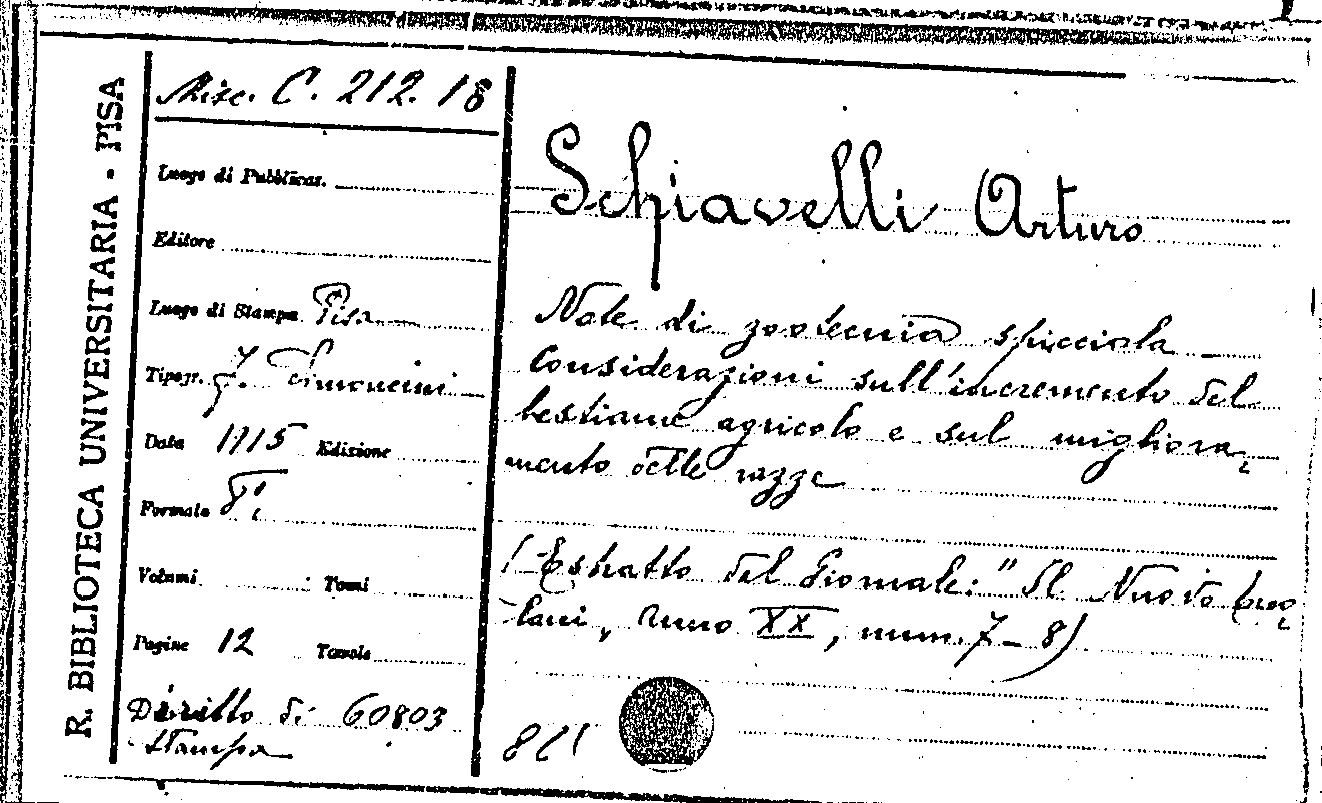 R. BIBLIOTECA UNIVERSITARIA - PISA
Misc. C. 212. 18
Luogo di Pubblicaz.
Editore
Luogo di Stampa Pisa
Tipogr. F. Simoncini
Data 1915 Edizione
Formato 8º
Volumi Tomi
Pagine 12 Tavole
Diritto di 60803
stampa
Schiavelli Arturo
Note di zootecnia spicciola
Considerazioni sull'incremento del
bestiame agricolo e sul migliora-
mento delle razze
(Estratto dal Giornale: "Il Nuovo
anno XX, num. 7-8)